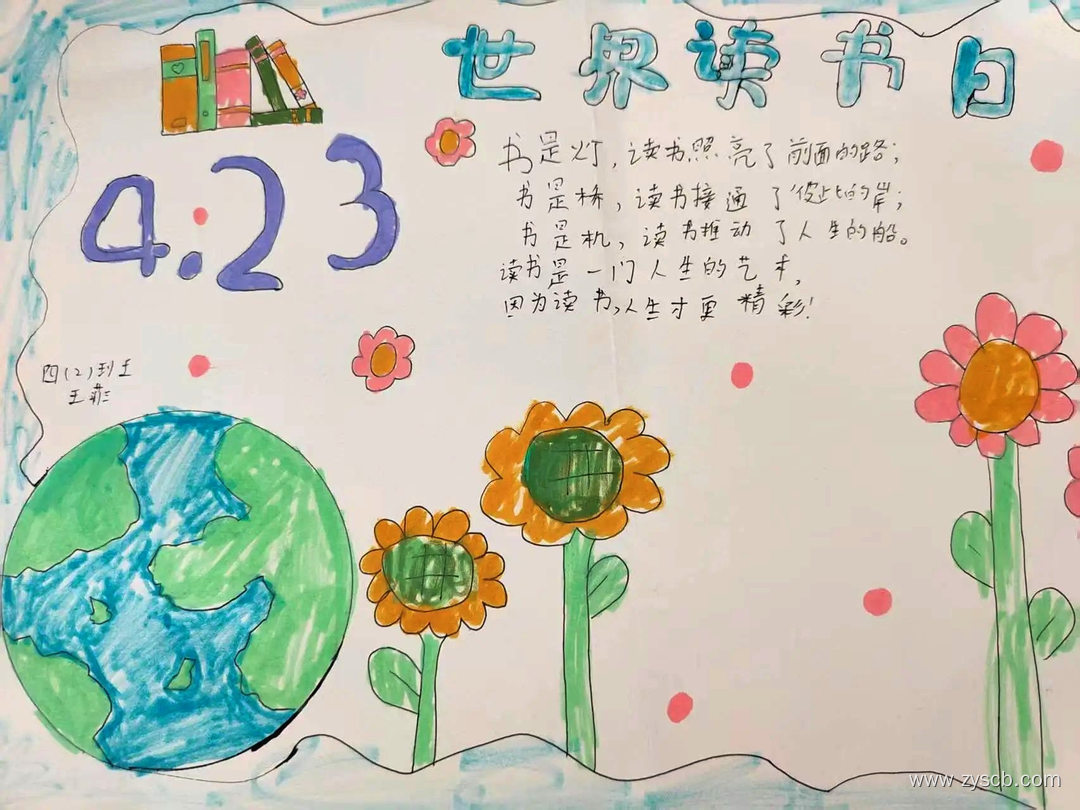 世界读书日
4.23
书是灯，读书照亮了前面的路；
书是桥，读书接通了彼此的岸；
书是机，读书推动了人生的船。
读书是一门人生的艺术，
因为读书，人生才更精彩！
四(2)班
王
www.zyscb.com